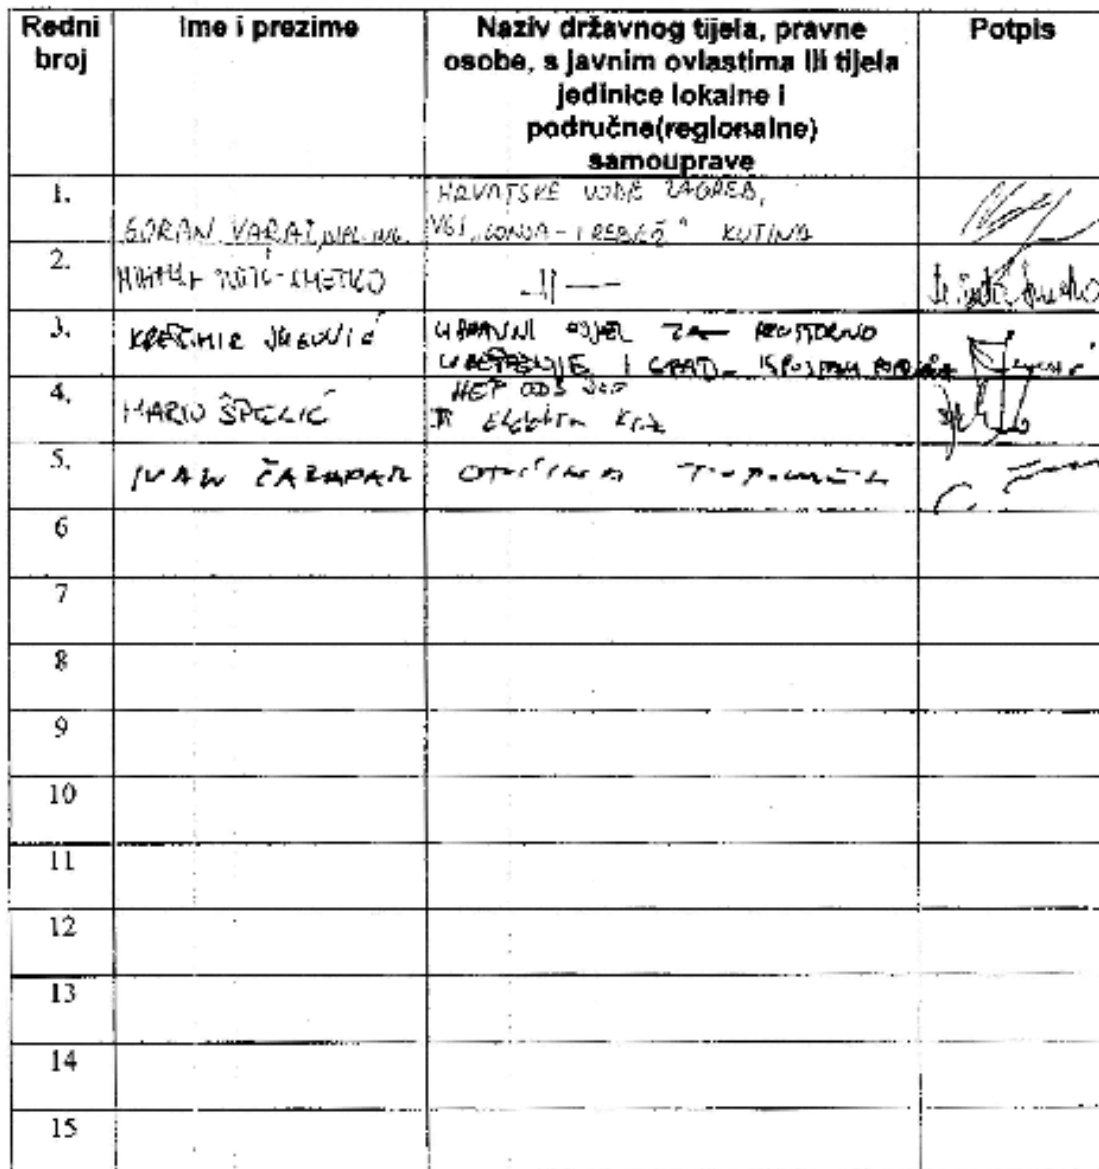 Redni broj
Ime i prezime
Naziv državnog tijela, pravne
osobe, s javnim ovlastima ili tijela
jedinice lokalne i
područne(regionalne)
samouprave
Potpis
1.
GORAN VARAT, DIPL. ING.
HRVATSKE VODE ZAGREB,
VGI „LONJA-TREBEŽ" KUTINA
2.
-||-
3.
KREŠIMIR
UPRAVNI ODJEL ZA PROSTORNO
UREĐENJE I GRAD. ISPOSTAVA
4.
MARIO ŠPELIĆ
HEP ODS
Elektra Križ
5.
IVAN ČAZAPAR
OPĆINA
6
7
8
9
10
11
12
13
14
15